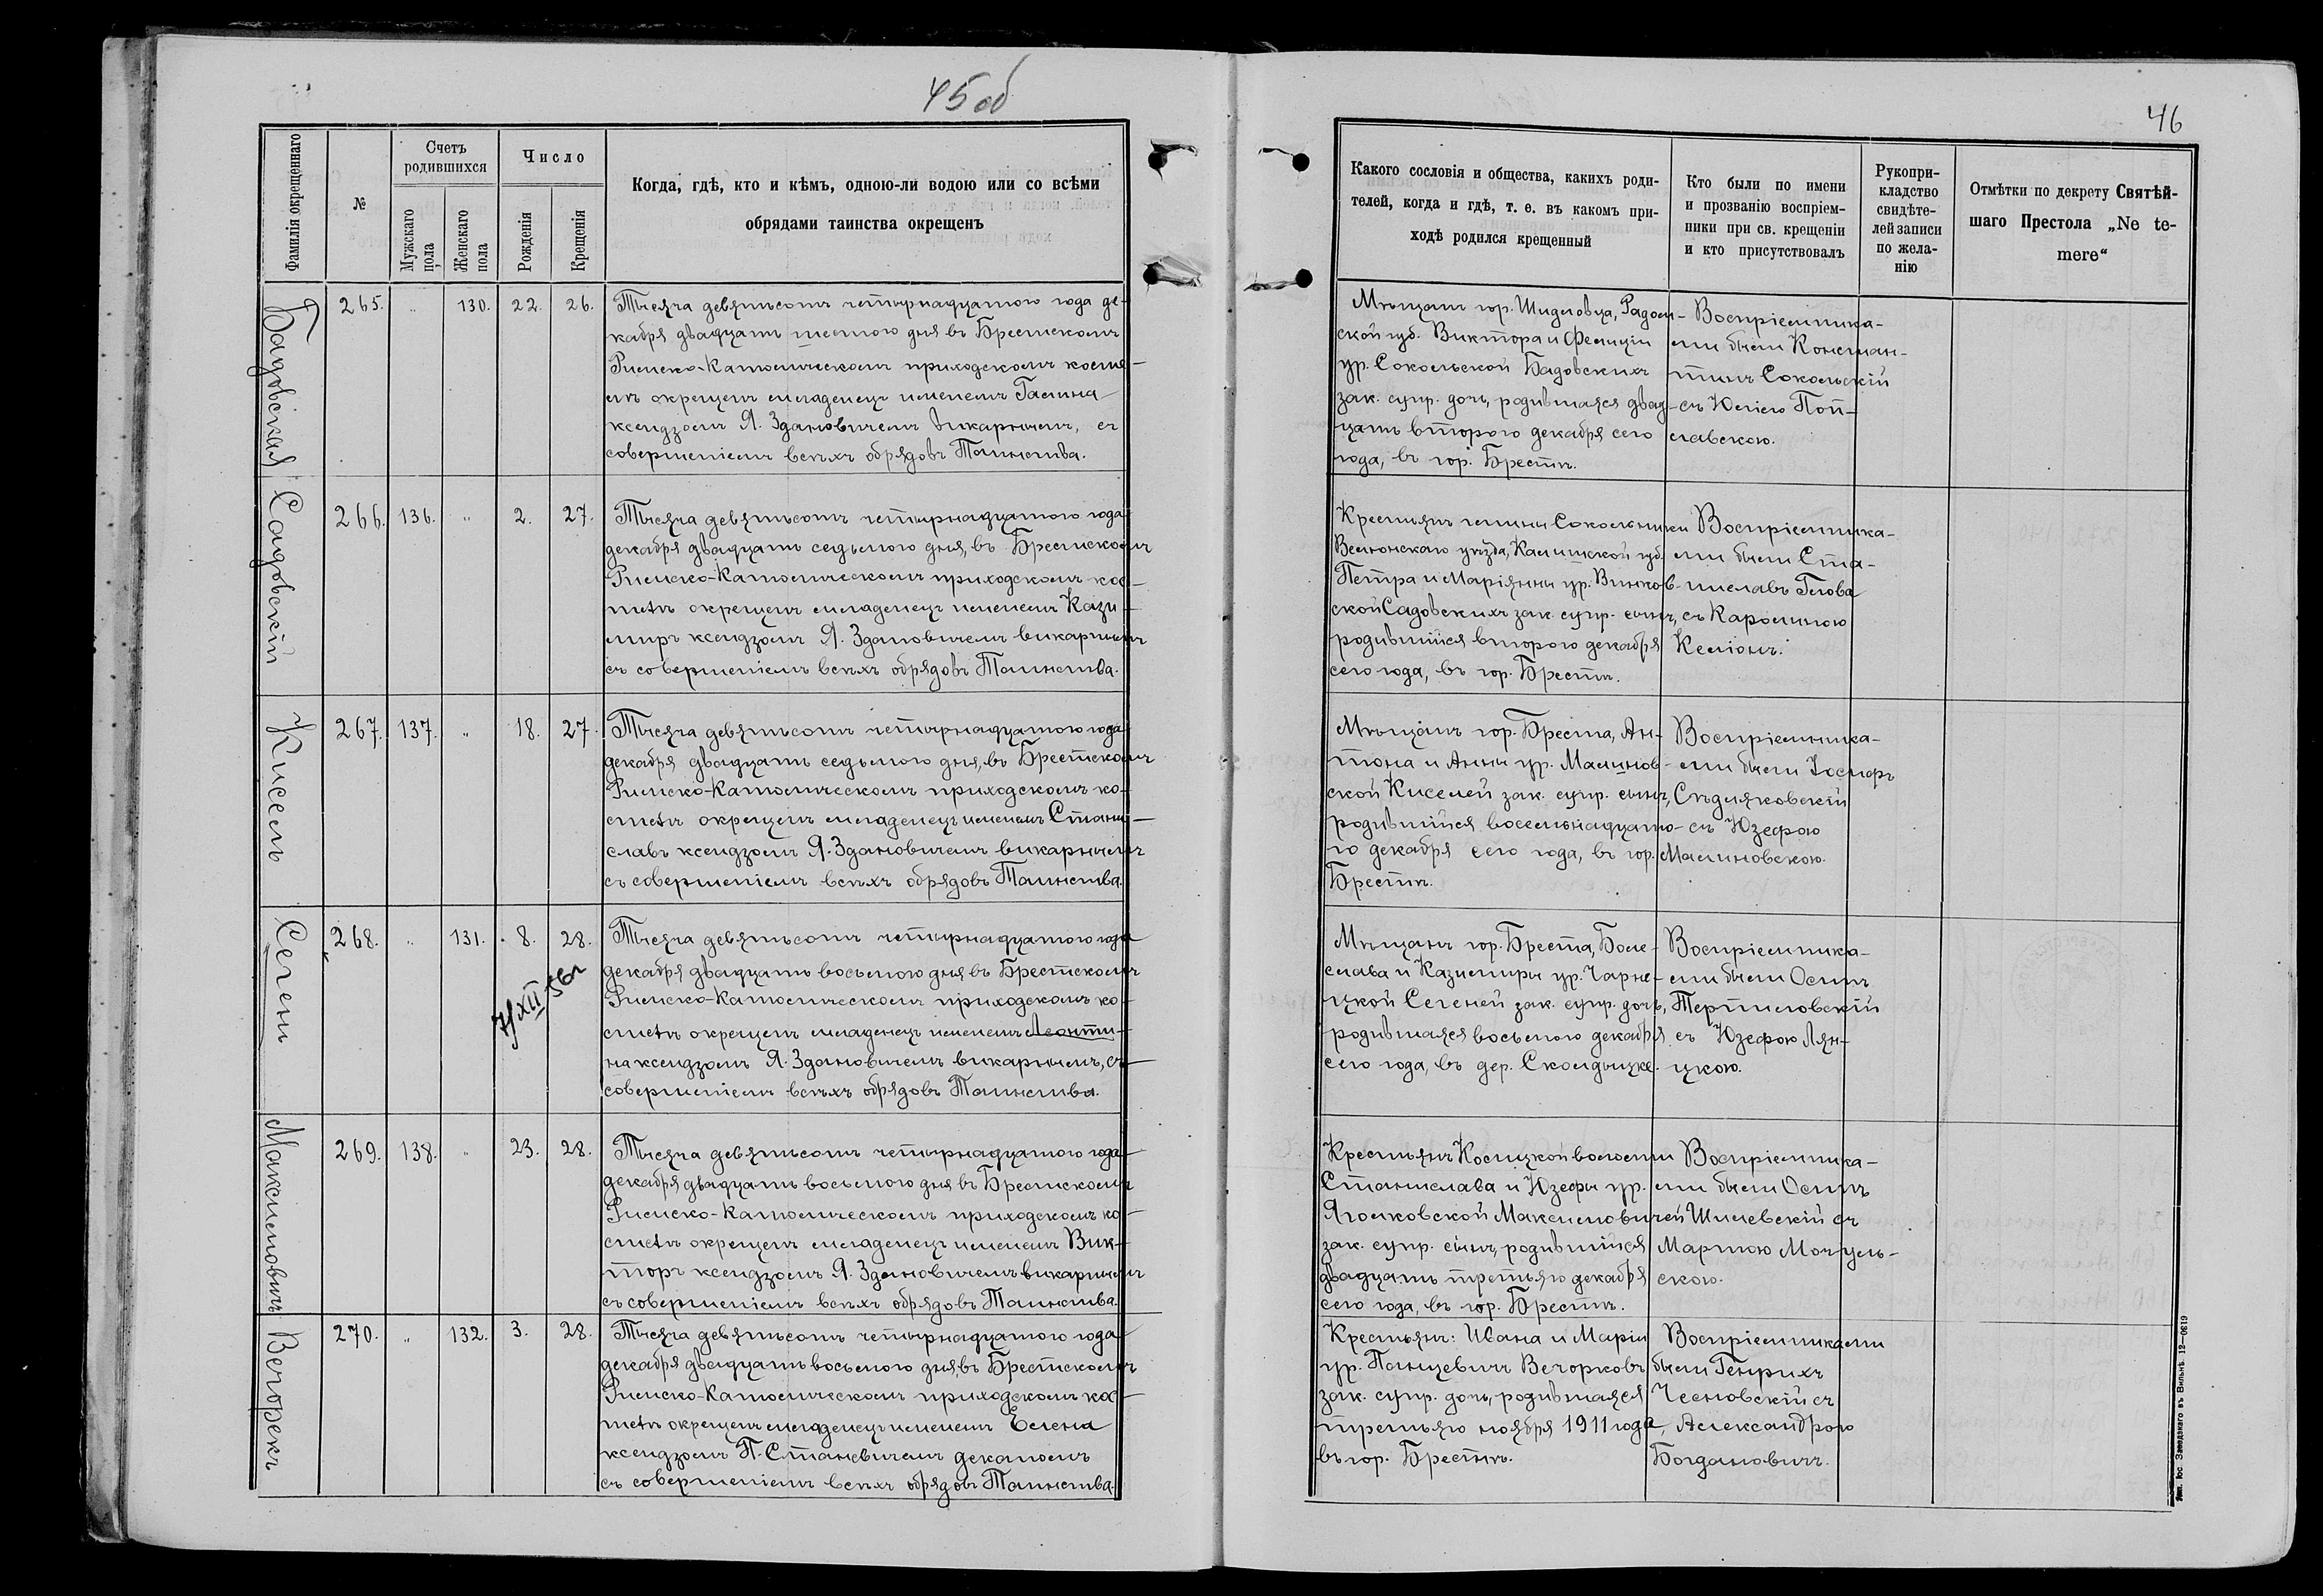 45 об
Фамилія окрещеннаго
№
Счетъ
родившихся
Мужскаго
пола
Женскаго
пола
Число
Рожденія
Крещенія
Когда, гдѣ, кто и кѣмъ, одною-ли водою или со всѣми
обрядами таинства окрещенъ
Бадовская
265. „ 130. 22. 26.
Тысяча девятьсотъ четырнадцатого года де-
кабря двадцать шестого дня въ Брестскомъ
Римско-Католическомъ приходскомъ косте-
лѣ окрещенъ младенецъ именемъ Галина
ксендзомъ Я. Здановичемъ викарнымъ, съ
совершеніемъ всѣхъ обрядовъ Таинства.
Садовскій
266. 136. „ 2. 27.
Тысяча девятьсотъ четырнадцатого года
декабря двадцать седьмого дня, въ Брестскомъ
Римско-Католическомъ приходскомъ кос-
телѣ окрещенъ младенецъ именемъ Кази-
миръ ксендзомъ Я. Здановичемъ викарнымъ
съ совершеніемъ всѣхъ обрядовъ Таинства.
Кисель
267. 137. „ 18. 27.
Тысяча девятьсотъ четырнадцатого года
декабря двадцать седьмого дня, въ Брестскомъ
Римско-Католическомъ приходскомъ ко-
стелѣ окрещенъ младенецъ именемъ Стани-
славъ ксендзомъ Я. Здановичемъ викарнымъ
съ совершеніемъ всѣхъ обрядовъ Таинства.
Сегень
268. „ 131. 8. 28.
7/XII 56г
Тысяча девятьсотъ четырнадцатого года
декабря двадцать восьмого дня въ Брестскомъ
Римско-Католическомъ приходскомъ ко-
стелѣ окрещенъ младенецъ именемъ Леонти-
на ксендзомъ Я. Здановичемъ викарнымъ, съ
совершеніемъ всѣхъ обрядовъ Таинства.
Максимовичъ
269. 138. „ 23. 28.
Тысяча девятьсотъ четырнадцатого года
декабря двадцать восьмого дня въ Брестскомъ
Римско-Католическомъ приходскомъ ко-
стелѣ окрещенъ младенецъ именемъ Вик-
торъ ксендзомъ Я. Здановичемъ викарнымъ
съ совершеніемъ всѣхъ обрядовъ Таинства.
Вечорекъ
270. „ 132. 3. 28.
Тысяча девятьсотъ четырнадцатого года
декабря двадцать восьмого дня, въ Брестскомъ
Римско-Католическомъ приходскомъ кос-
телѣ окрещенъ младенецъ именемъ Елена
ксендзомъ П. Станевичемъ деканомъ
съ совершеніемъ всѣхъ обрядовъ Таинства.
46
Какого сословія и общества, какихъ роди-
телей, когда и гдѣ, т. е. въ какомъ при-
ходѣ родился крещенный
Кто были по имени
и прозванію воспріем-
ники при св. крещеніи
и кто присутствовалъ
Рукопри-
кладство
свидѣте-
лей записи
по жела-
нію
Отмѣтки по декрету Святѣй-
шаго Престола „Ne te-
mere“
Мѣщанъ гор. Шидловца, Радом-
ской губ. Виктора и Фелиціи
ур. Сокольской Бадовскихъ
зак. супр. дочь, родившаяся двад-
цать второго декабря сего
года, въ гор. Брестѣ.
Воспріемника-
ми были Констан-
тинъ Сокольскій
съ Юліею Поп-
лавскою.
Крестьянъ гмины Сокольники
Велюнскаго уѣзда, Калишской губ.
Петра и Маріянны ур. Винков-
ской Садовскихъ зак. супр. сынъ,
родившійся второго декабря
сего года, въ гор. Брестѣ.
Воспріемника-
ми были Ста-
ниславъ Глова
съ Каролиною
Мѣщанъ гор. Бреста, Ан-
тона и Анны ур. Малинов-
ской Киселей зак. супр. сынъ,
родившійся восемнадцато-
го декабря сего года, въ гор.
Брестѣ.
Воспріемника-
ми были Іосифъ
Сѣдляковскій
съ Юзефою
Малиновскою.
Мѣщанъ гор. Бреста, Боле-
слава и Казимиры ур. Чарне-
цкой Сегеней зак. супр. дочь,
родившаяся восьмого декабря
сего года, въ дер. Сколдыцке.
Воспріемника-
ми были Осипъ
Терпиловскій
съ Юзефою Лян-
цкою.
Крестьянъ Косицкой волости
Станислава и Юзефы ур.
Яголковской Максимовичей
зак. супр. сынъ, родившійся
двадцать третьяго декабря
сего года, въ гор. Брестѣ.
Воспріемника-
ми были Осипъ
Шилевскій съ
Мартою Мочуль-
скою.
Крестьянъ: Ивана и Маріи
ур. Панцевичъ Вечорковъ
зак. супр. дочь, родившаяся
третьяго ноября 1911 года,
въ гор. Брестѣ.
Воспріемниками
были Генрихъ
Чесновскій съ
Александрою
Богдановичъ.
Тип. Іос. Завадзкаго въ Вильнѣ. 12—0619